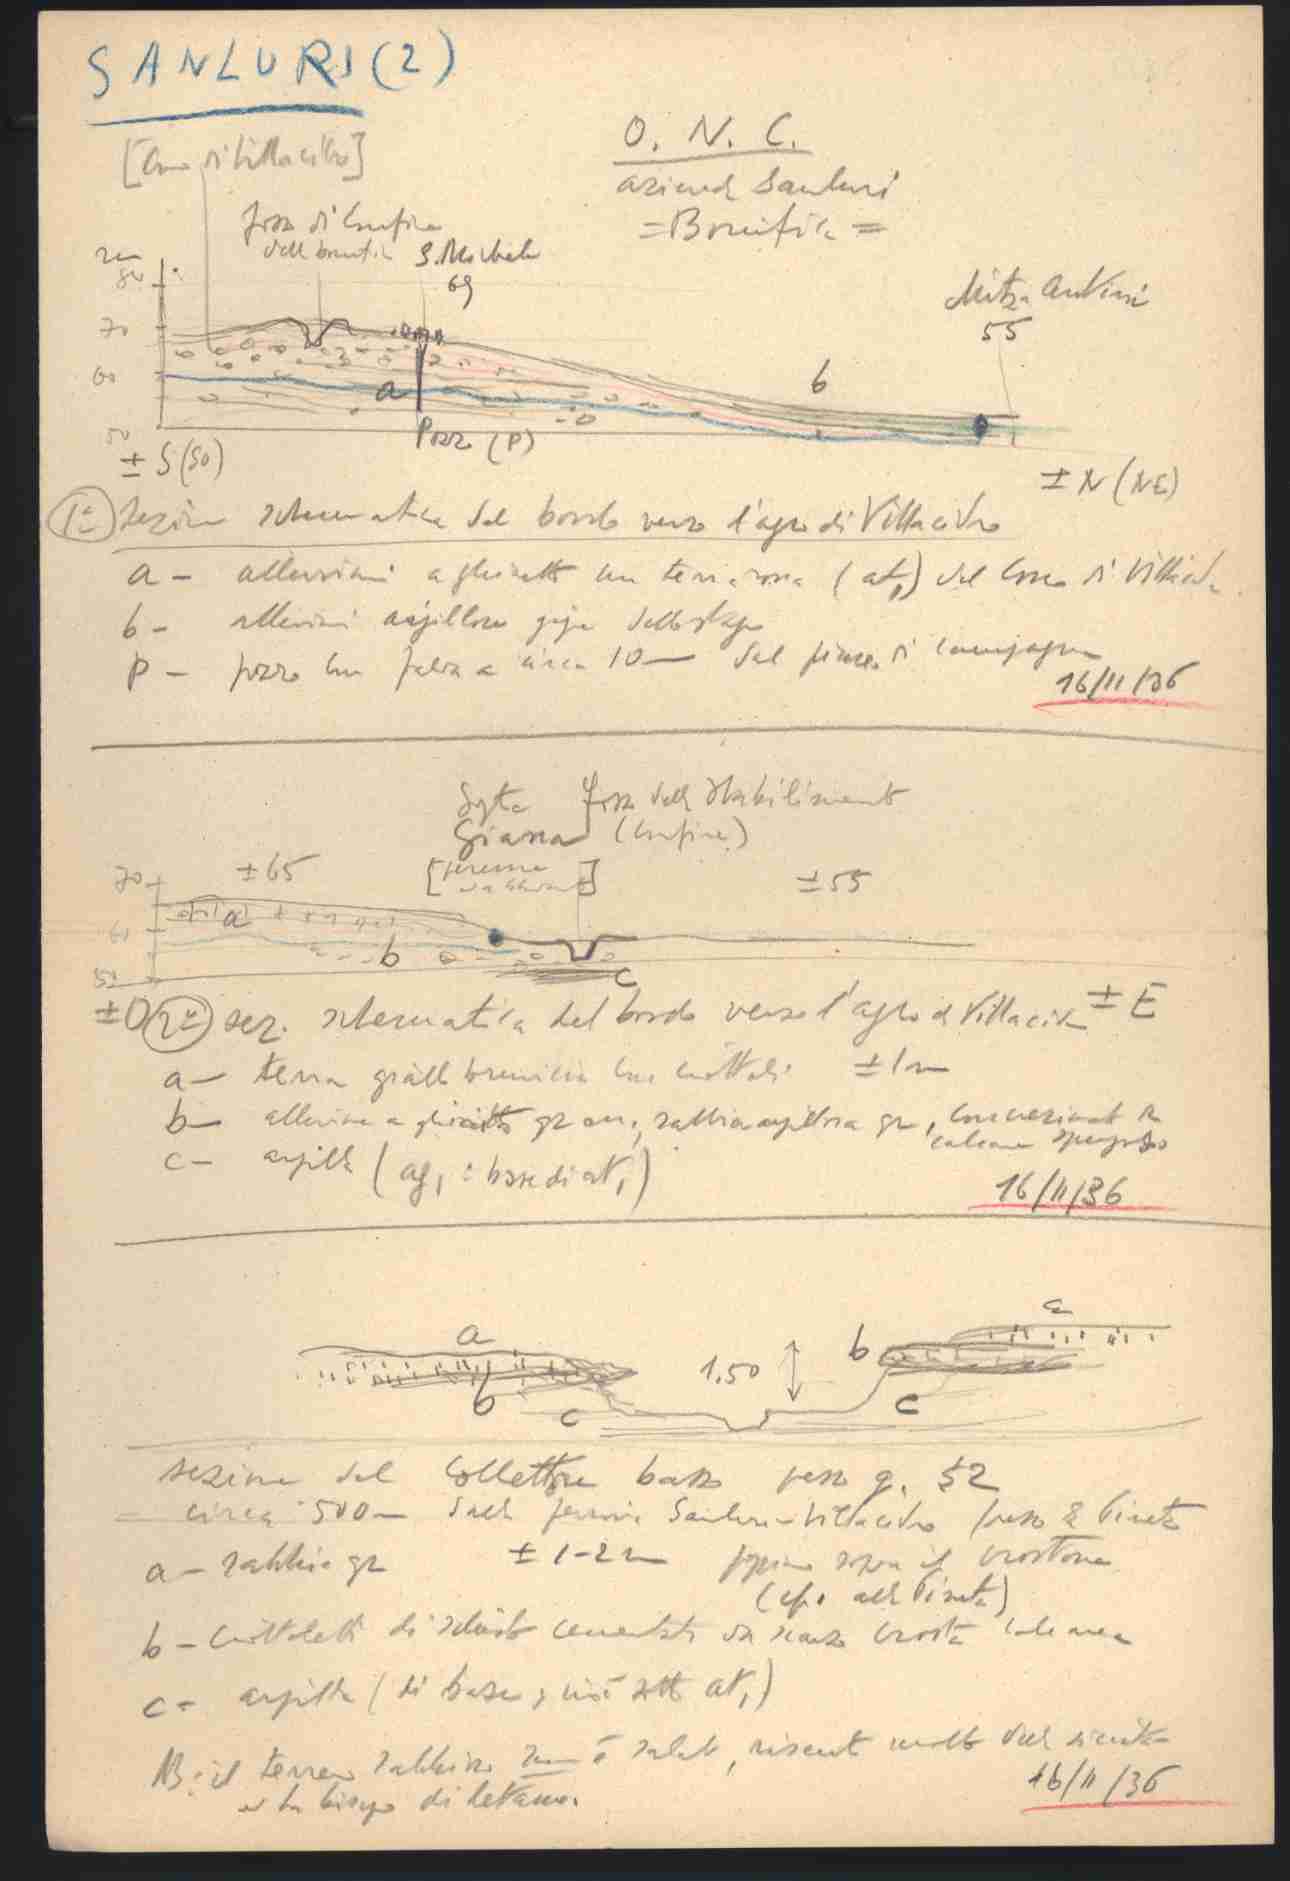 SANLURI (2)
[Cono di Villacidro]
O. N. C.
azienda Sanluri
=Bonifica=
fosso di confine
della bonifica
S. Michele
69
m
80
70
60
50
Mitza
55
a
b
Pozzo (P)
± S (SO)
± N (NE)
1ª Sezione schematica del bordo verso l'agro di Villacidro
a - alluvioni a ghiaette con terra rossa (at₁) del Cono di Villacidro
b - alluvioni argillose grige dello stagno
P - pozzo con falda a circa 10 m dal piano di campagna
16/11/36
Sgte
Giana
fosso dello stabilimento
(confine)
[perenne
]
70
60
50
±65
±55
a
b
c
±O
± E
2ª sez. schematica del bordo verso l'agro di Villacidro
a - terra gialla brunicia con ciottoli ±1m
b - alluvione a ghiaietto, sabbia argillosa, concrezionata da
calcare spugnoso
c - argilla (ag₁ : base di at₁)
16/11/36
a
b
c
1.50
b
a
c
sezione del Collettore basso presso q. 52
= circa 500 m dalla ferrovia Sanluri-Villacidro presso la Pineta
a - sabbia ± 1-2 m sopra il crostone
(cfr. alla Pineta)
b - ciottoletti di scisto cementati da scarsa crosta calcarea
c = argilla (di base, cioè sotto at₁)
NB: il terreno sabbioso non è salato, risente molto della siccità
ed ha bisogno di letame.
16/11/36